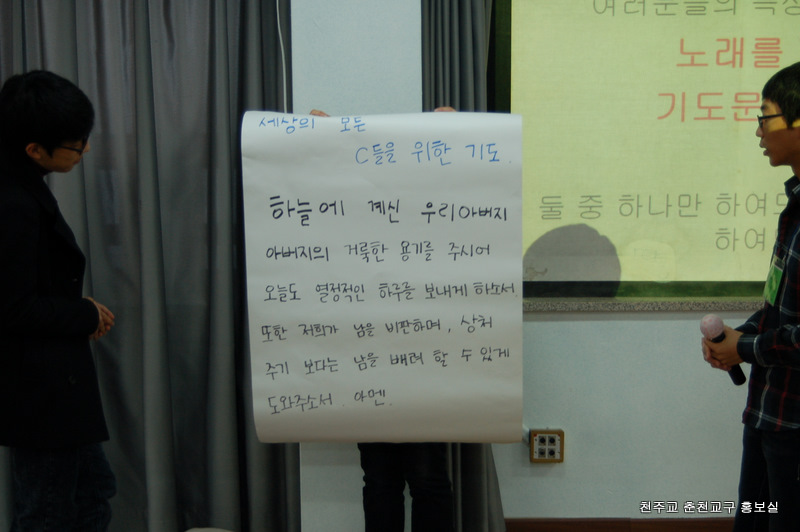 여러분들의
노래를
기도문
둘 중 하나만 하여도
하여
세상의 모든
C들을 위한 기도.
하늘에 계신 우리아버지
아버지의 거룩한 용기를 주시어
오늘도 열정적인 하루를 보내게 하소서.
또한 저희가 남을 비판하며, 상처
주기 보다는 남을 배려 할 수 있게
도와주소서. 아멘.
천주교 춘천교구 홍보실